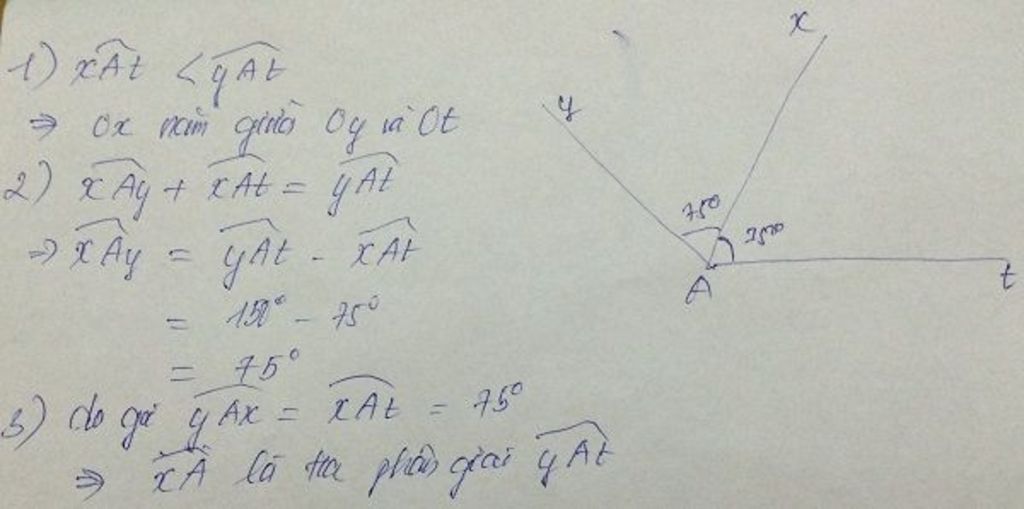 1) xÂt < yÂt
⇒ Ox nằm giữa Oy và Ot
2) xÂy + xÂt = yÂt
⇒ xÂy = yÂt - xÂt
= 150° - 75°
= 75°
3) do góc yÂx = xÂt = 75°
⇒ xÂ là tia phân giác yÂt
x
y
75°
75°
A
t